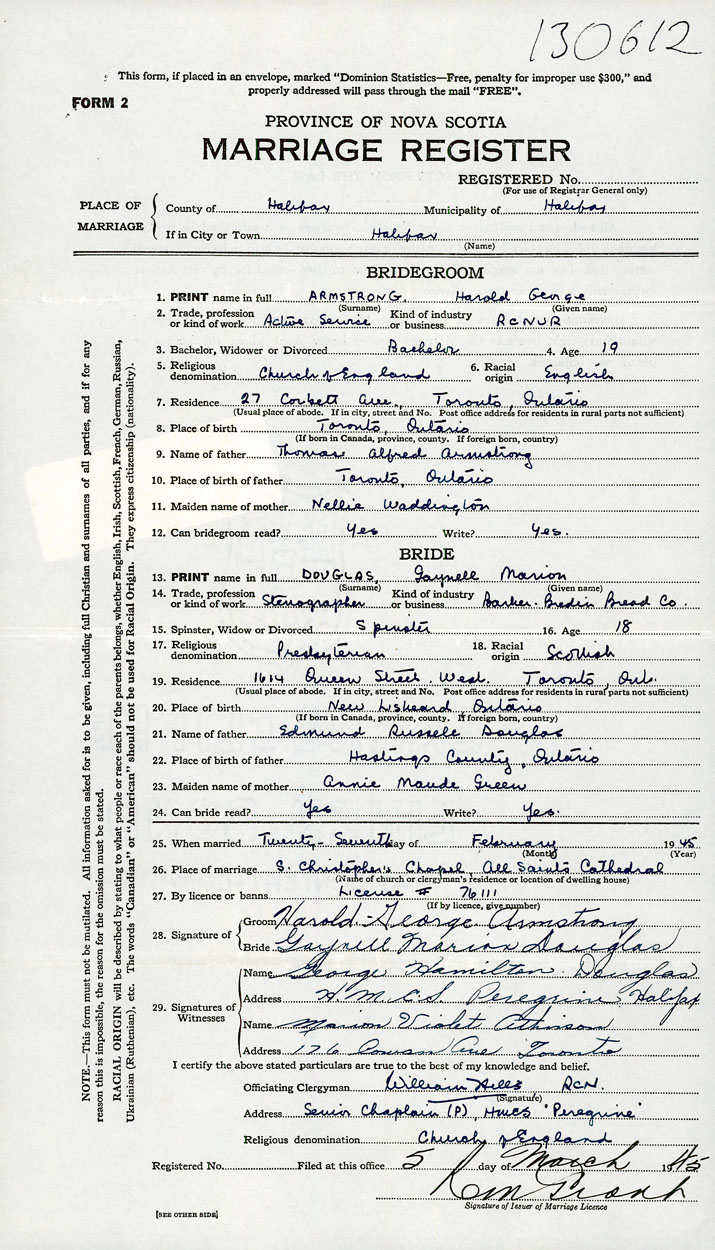 130612
This form, if placed in an envelope, marked “Dominion Statistics—Free, penalty for improper use $300,” and
properly addressed will pass through the mail “FREE”.
FORM 2
PROVINCE OF NOVA SCOTIA
MARRIAGE REGISTER
REGISTERED No.
(For use of Registrar General only)
PLACE OF MARRIAGE
County of Halifax Municipality of Halifax
If in City or Town Halifax
(Name)
BRIDEGROOM
1. PRINT name in full ARMSTRONG. Harold George
(Surname) (Given name)
2. Trade, profession or kind of work Active Service Kind of industry or business RCNVR
3. Bachelor, Widower or Divorced Bachelor 4. Age 19
5. Religious denomination Church of England 6. Racial origin English
7. Residence 27 Corbett Ave., Toronto, Ontario
(Usual place of abode. If in city, street and No. Post office address for residents in rural parts not sufficient)
8. Place of birth Toronto, Ontario
(If born in Canada, province, county. If foreign born, country)
9. Name of father Thomas Alfred Armstrong
10. Place of birth of father Toronto, Ontario
11. Maiden name of mother Nellie Waddington
12. Can bridegroom read? Yes Write? Yes.
BRIDE
13. PRINT name in full DOUGLAS, Gaynell Marion
(Surname) (Given name)
14. Trade, profession or kind of work Stenographer Kind of industry or business Barker-Bredin Bread Co.
15. Spinster, Widow or Divorced Spinster 16. Age 18
17. Religious denomination Presbyterian 18. Racial origin Scottish
19. Residence 1614 Queen Street West. Toronto, Ont.
(Usual place of abode. If in city, street and No. Post office address for residents in rural parts not sufficient)
20. Place of birth New Liskeard, Ontario
(If born in Canada, province, county. If foreign born, country)
21. Name of father Edmund Russell Douglas
22. Place of birth of father Hastings County, Ontario
23. Maiden name of mother Annie Maude Green
24. Can bride read? Yes Write? Yes.
25. When married Twenty-Seventh day of February 1945
(Month) (Year)
26. Place of marriage S. Christopher's Chapel, All Saints Cathedral
(Name of church or clergyman's residence or location of dwelling house)
27. By licence or banns License # 76111
(If by licence, give number)
28. Signature of Groom Harold George Armstrong
Bride Gaynell Marion Douglas
29. Signatures of Witnesses
Name George Hamilton Douglas
Address H.M.C.S. Peregrine Halifax
Name Marion Violet Atkinson
Address 176 Cowan Ave Toronto
I certify the above stated particulars are true to the best of my knowledge and belief.
Officiating Clergyman William Hills RCN.
(Signature)
Address Senior Chaplain (P), HMCS 'Peregrine'
Religious denomination Church of England
Registered No. Filed at this office 5 day of March 1945
Signature of Issuer of Marriage Licence
[SEE OTHER SIDE]
NOTE.—This form must not be mutilated. All information asked for is to be given, including full Christian and surnames of all parties, and if for any
reason this is impossible, the reason for the omission must be stated.
RACIAL ORIGIN will be described by stating to what people or race each of the parents belongs, whether English, Irish, Scottish, French, German, Russian,
Ukrainian (Ruthenian), etc. The words “Canadian” or “American” should not be used for Racial Origin. They express citizenship (nationality).